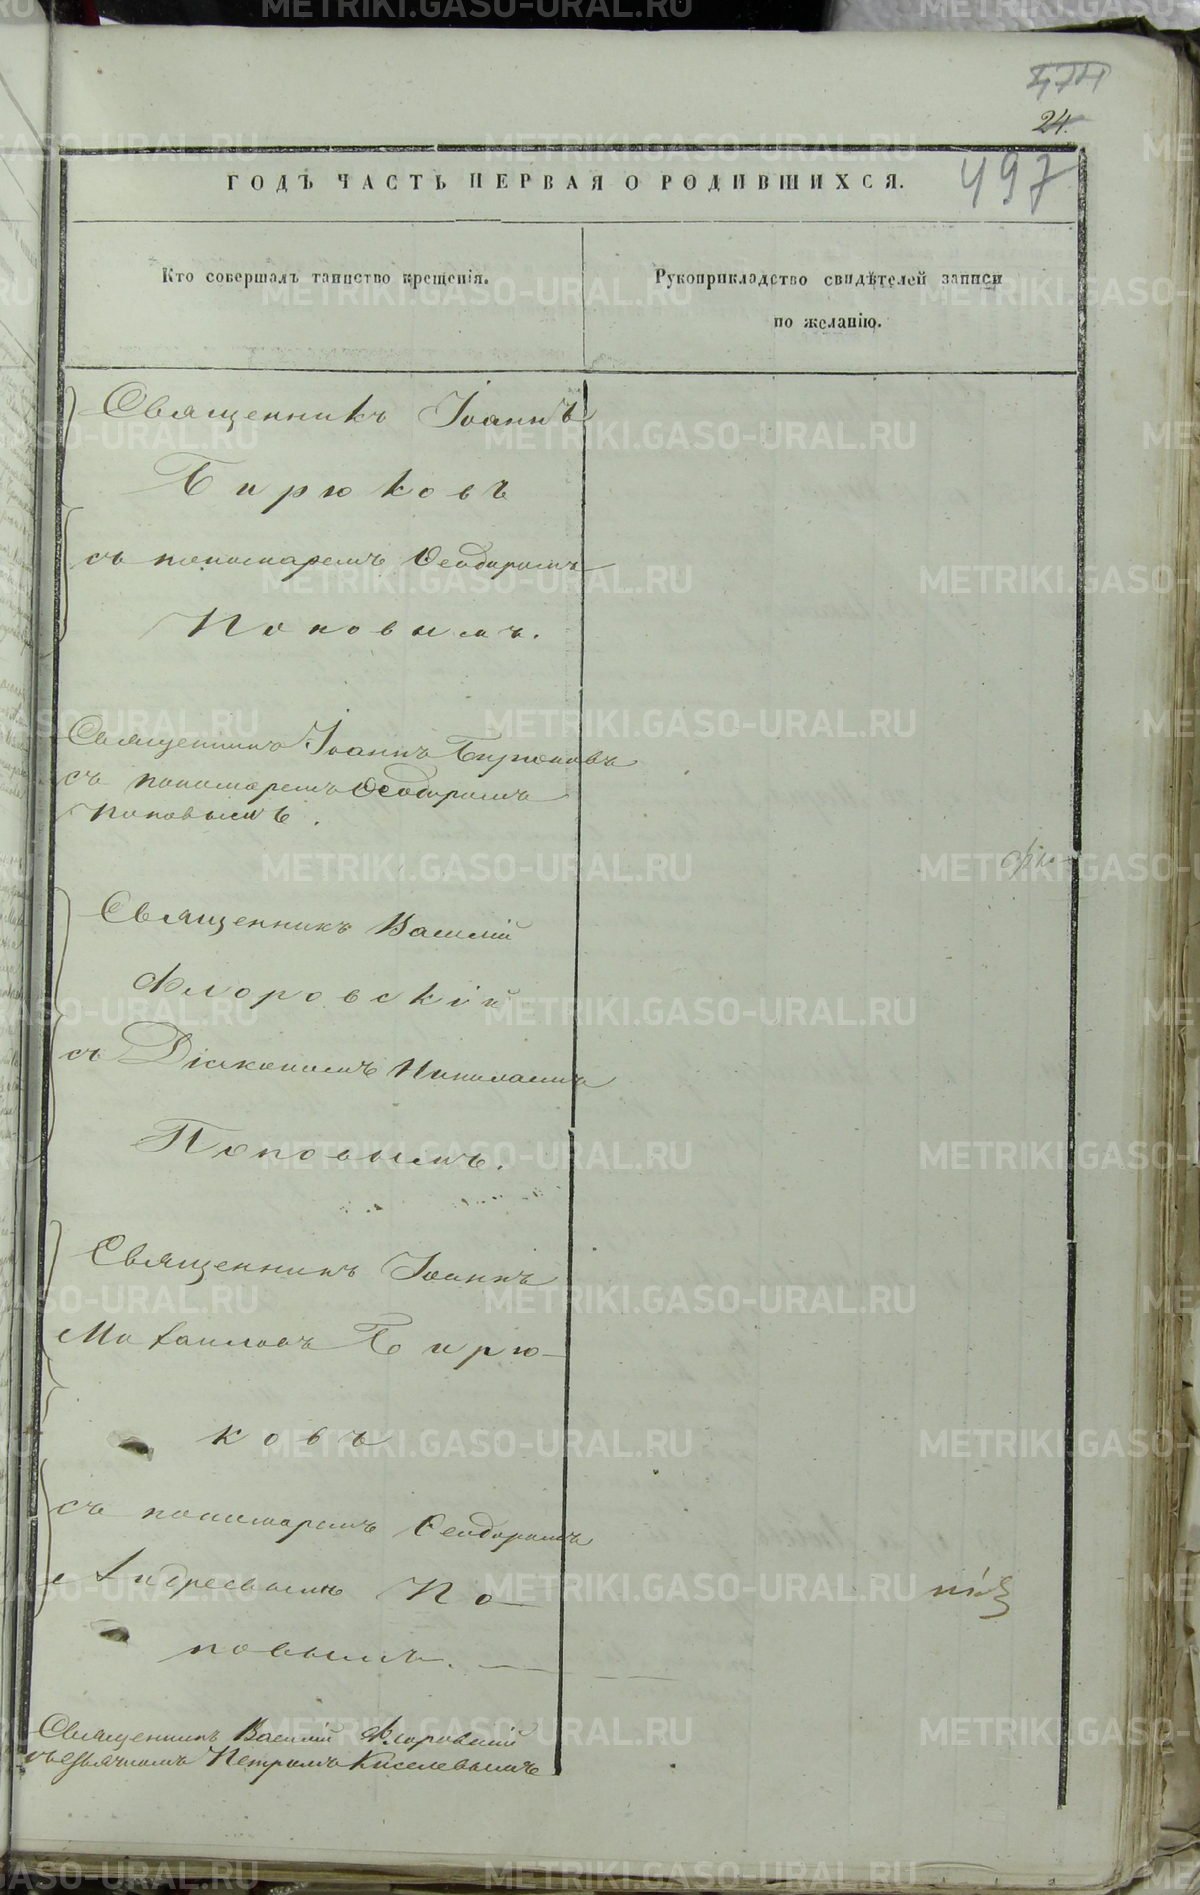 474
24.
497
ГОДЪ ЧАСТЬ ПЕРВАЯ О РОДИВШИХСЯ.
Кто совершалъ таинство крещенія.
Рукоприкладство свидѣтелей записи
по желанію.
Священникъ Іоаннъ
Бирюковъ
съ пономаремъ Ѳеодоромъ
Поповымъ.
Священникъ Іоаннъ Бирюковъ
съ пономаремъ Ѳеодоромъ
Поповымъ.
Священникъ Василій
Флоровскій
съ Діакономъ Николаемъ
Поповымъ.
Священникъ Іоаннъ
Михаиловъ Бирю-
ковъ
съ пономаремъ Ѳеодоромъ
Андреевымъ По-
повымъ.
Священникъ Василій Флоровскій
съ дьячкомъ Петромъ Киселевымъ
METRIKI.GASO-URAL.RU